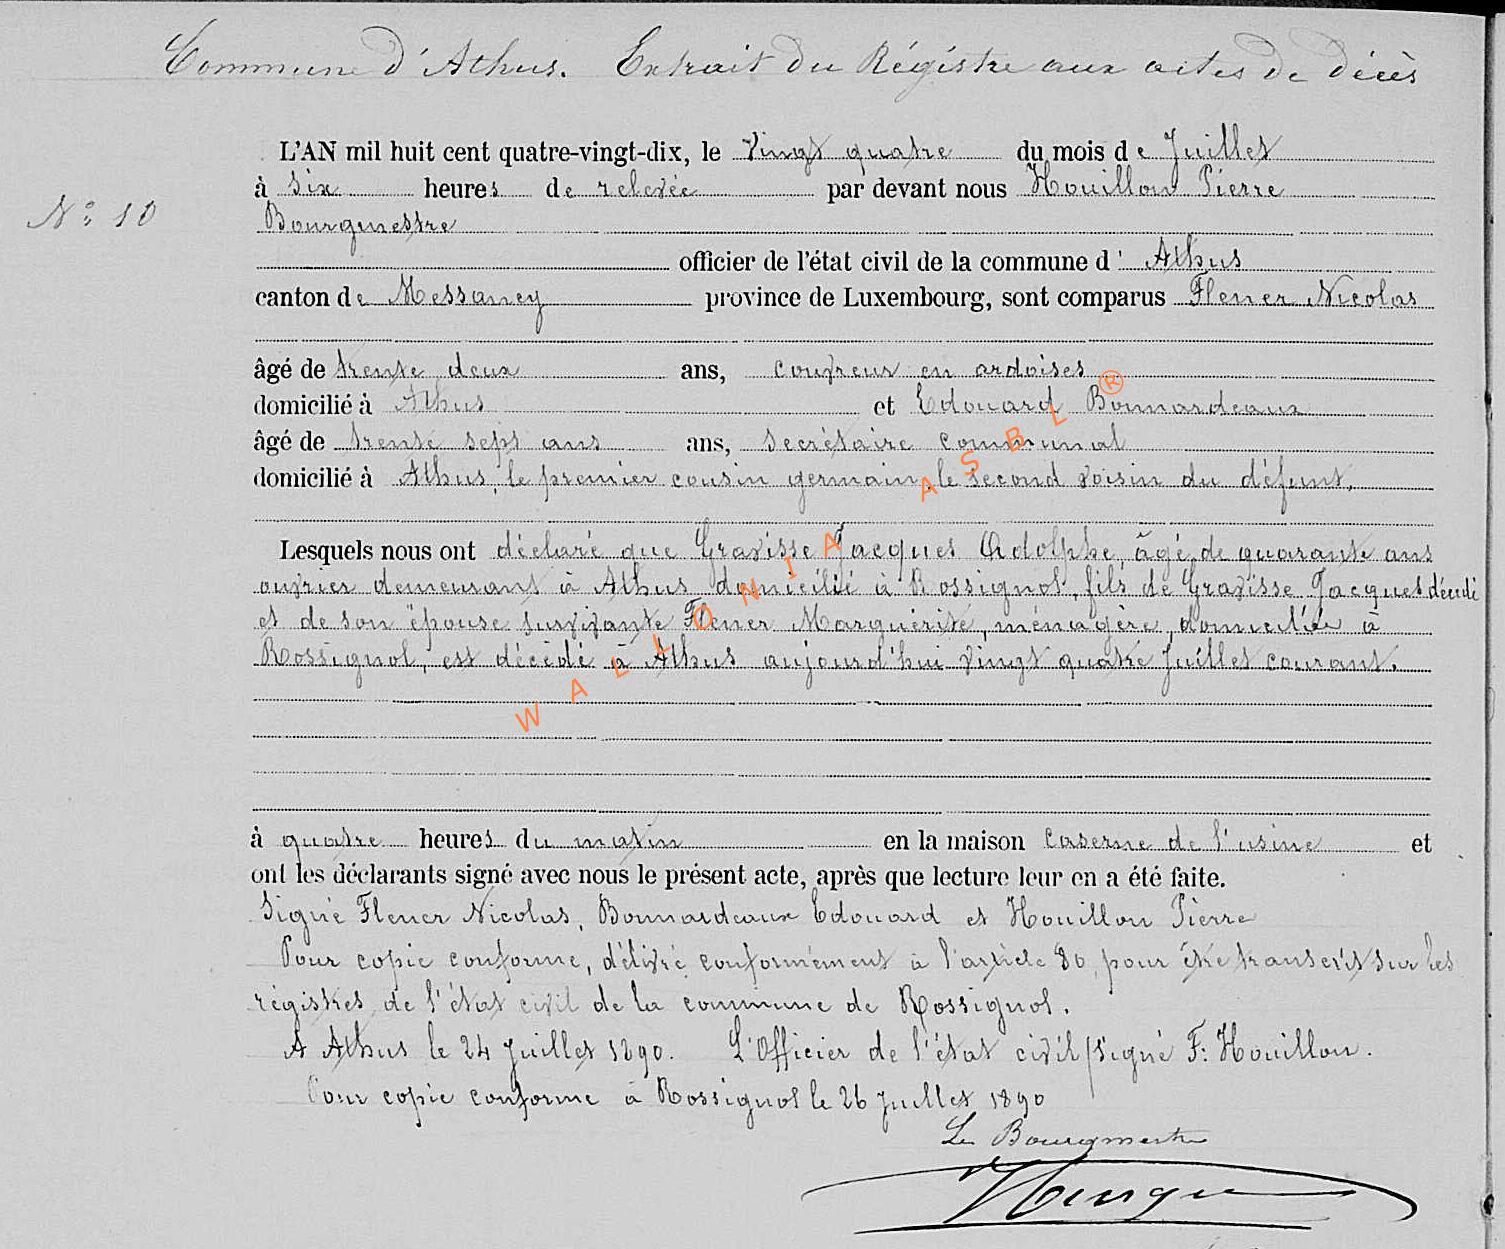 Commune d'Athus. Extrait du Régistre aux actes de décès
L'AN mil huit cent quatre-vingt-dix, le vingt quatre du mois de Juillet
à six heures de relevée par devant nous Houillon Pierre
N° 10
Bourgmestre
officier de l'état civil de la commune d' Athus
canton de Messancy province de Luxembourg, sont comparus Flener Nicolas
âgé de trente deux ans, couvreur en ardoises
domicilié à Athus et Edouard Bonnardeaux
âgé de trente sept ans ans, secrétaire communal
domicilié à Athus, le premier cousin germain, le second voisin du défunt,
Lesquels nous ont déclaré que Gravisse Jacques Adolphe, âgé de quarante ans
ouvrier demeurant à Athus domicilié à Rossignol, fils de Gravisse Jacques décédé
et de son épouse survivante Flener Marguérite, ménagère, domiciliée à
Rossignol, est décédé à Athus aujourd'hui vingt quatre Juillet courant.
WALLONIA ASBL ®
à quatre heures du matin en la maison caserne de l'usine et
ont les déclarants signé avec nous le présent acte, après que lecture leur en a été faite.
Signé Flener Nicolas, Bonnardeaux Edouard et Houillon Pierre
Pour copie conforme, délivré conformément à l'article 80, pour être transcrit sur les
régistres de l'état civil de la commune de Rossignol.
A Athus le 24 Juillet 1890. L'Officier de l'état civil (signé P: Houillon.
Pour copie conforme à Rossignol le 26 Juillet 1890
Le Bourgmestre